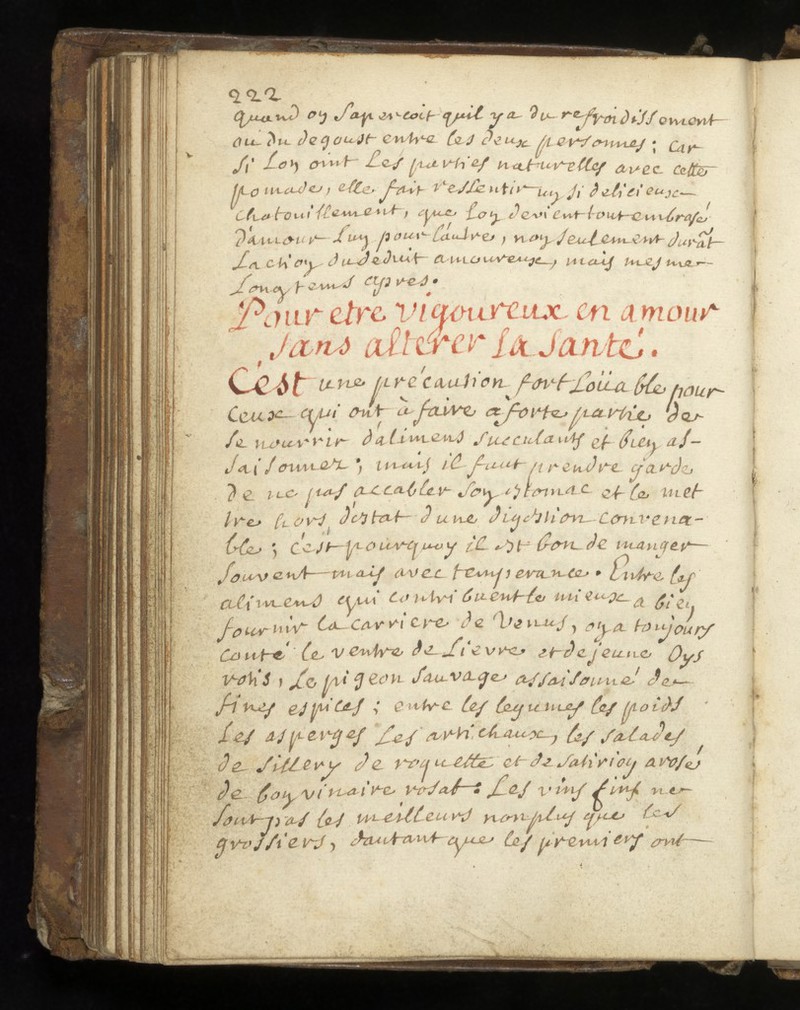 222
quand on s'aperçoit quil ya du refroidissement
ou du degoust entre les deux personnes ; car
si Lon oint Les parties naturelles avec cette
pomade, elle fait ressentir un si delicieux
chatouillement, que Lon devient tout embrasé
d'amour Lun pour l'autre, non seulement durāt
La ction du deduit amoureux, mais mesme
Longtems apres.
Pour etre vigoureux en amour
sans alterer La santé.
C'est une précaution fort Loüable pour
ceux qui ont à faire a forte partie de
se nourrir d'alimens succulants et bien as-
saisonnez ; mais il faut prendre garde
de ne pas accabler son estomac et le met
tre hors d'estat d'une digestion convena-
ble ; c'est pourquoy il est bon de manger
souvent mais avec temperance. Entre les
alimens qui contribuent le mieux a bien
fournir la carriere de Venus, on a toujours
conté le ventre de Lievre et de jeune Oys
rotis, Le pigeon sauvage assaisonné de
fines espices ; entre les legumes les poids
Les asperges Les artichaux, les salades
de sillery de roquette et de satirion arosé
de bon vinaire rosat : Les vins fins ne
sont pas les meilleurs non plus que les
grossiers, d'autant que les premiers ont